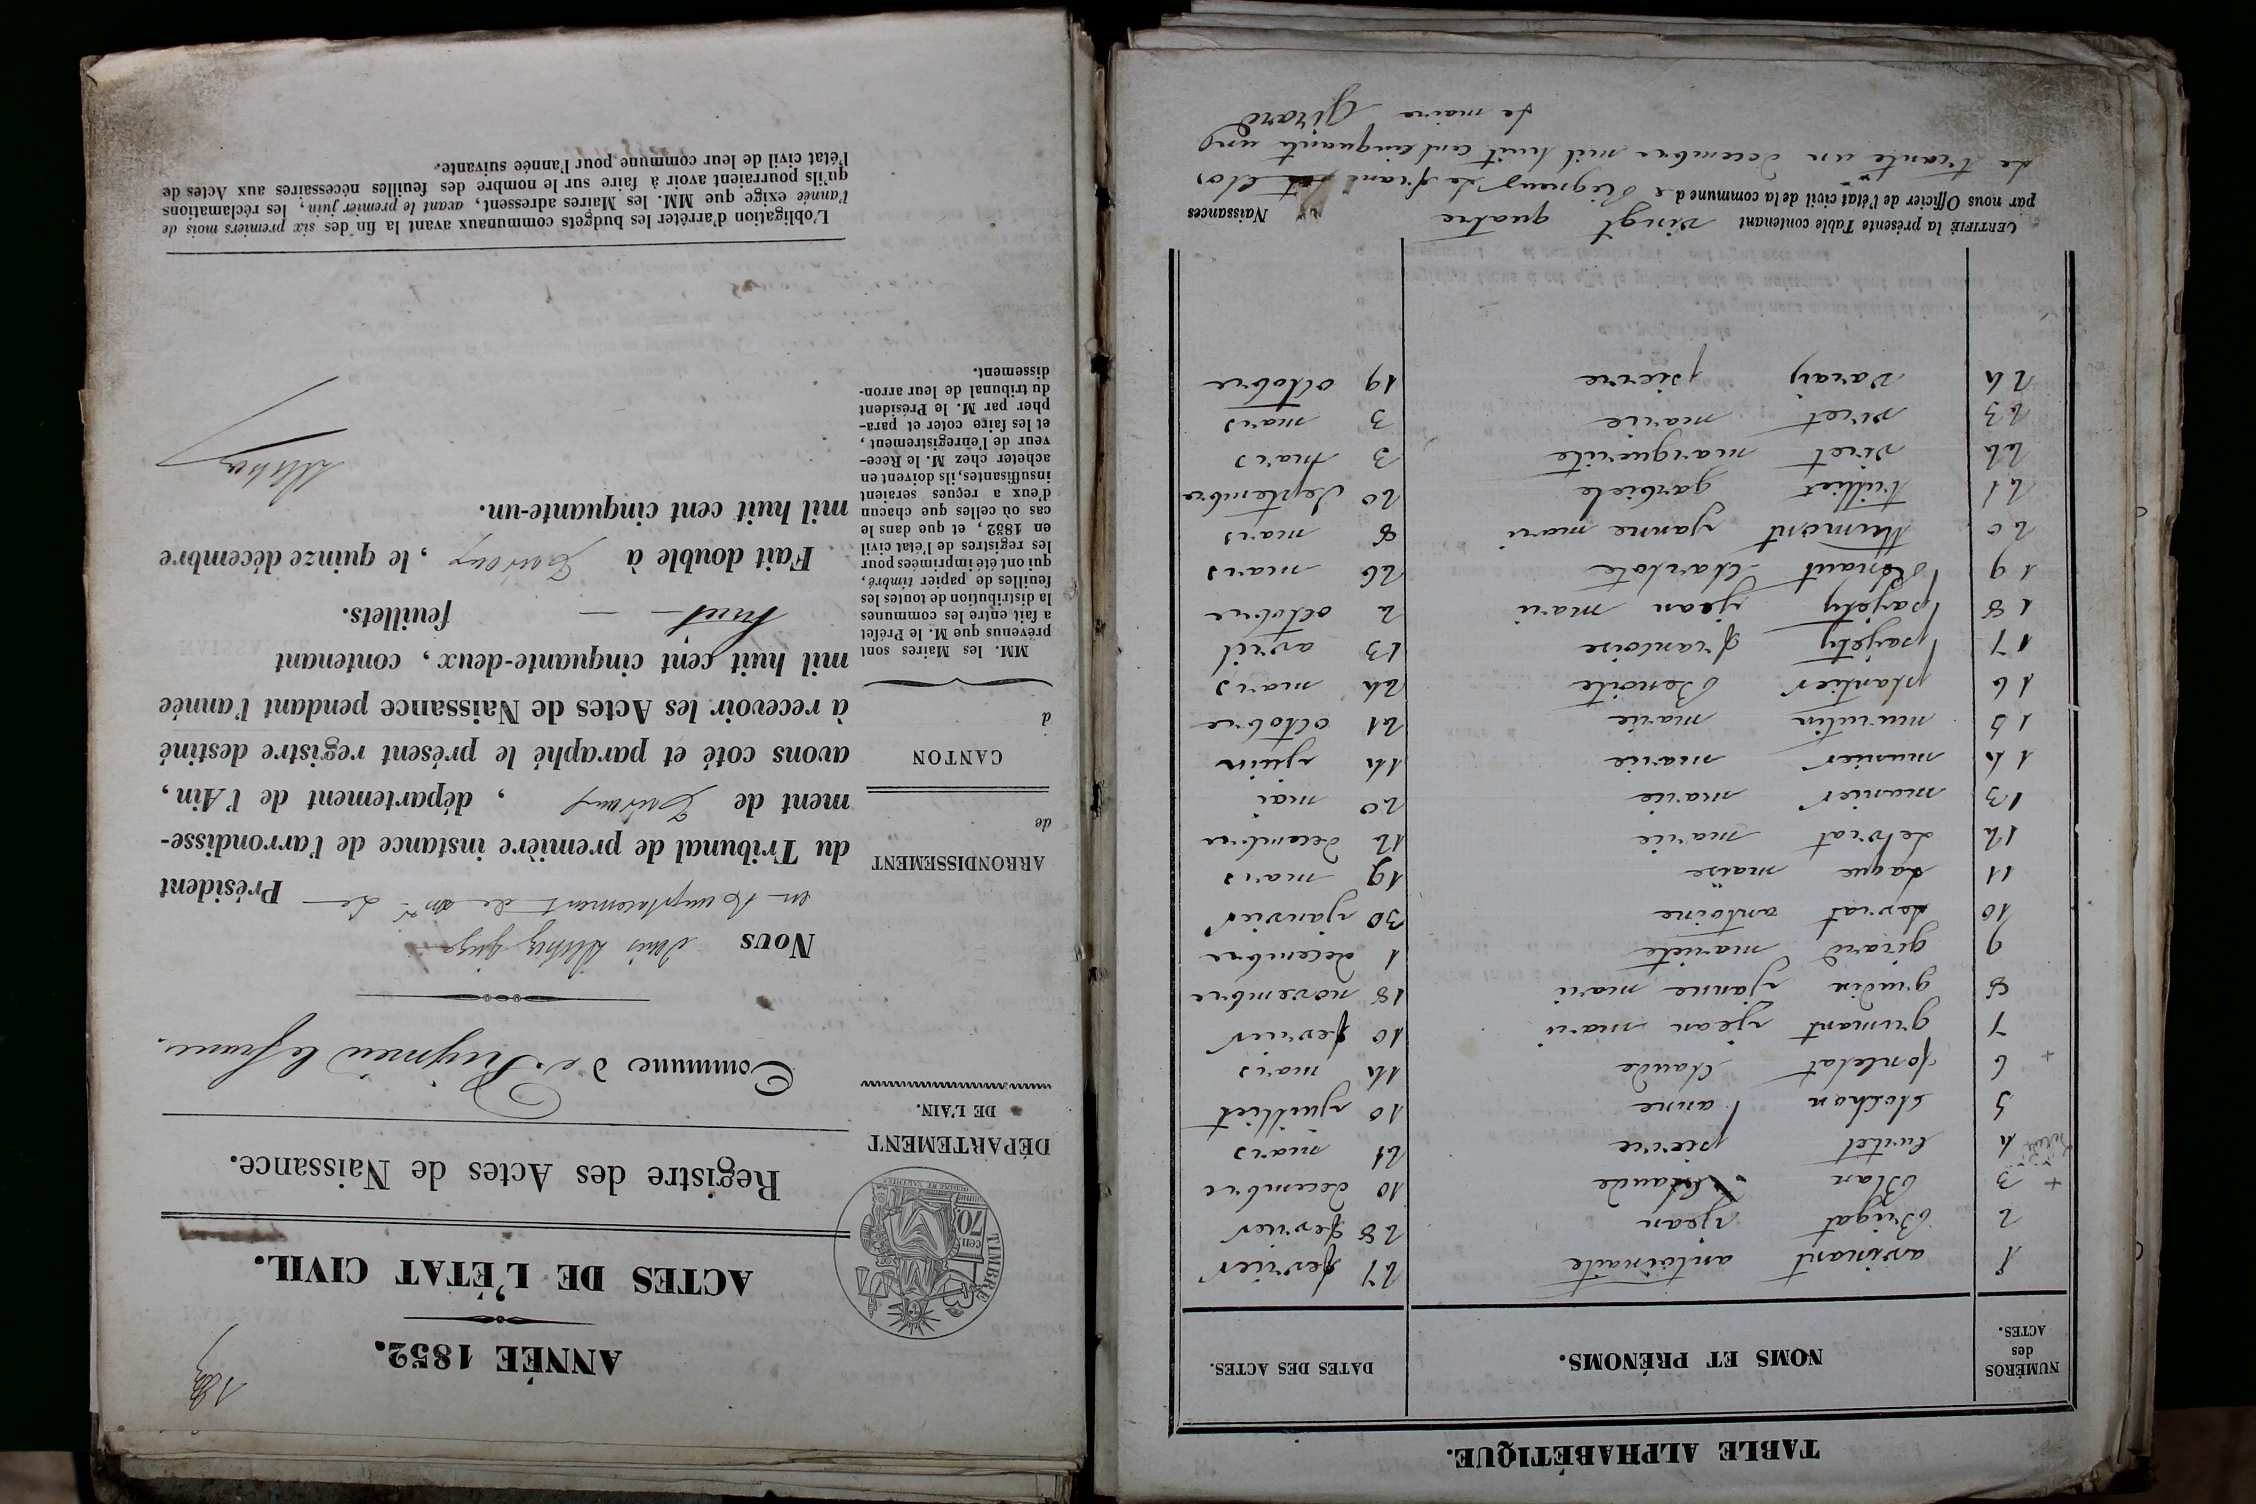 TABLE ALPHABÉTIQUE.
NUMÉROS des ACTES. NOMS ET PRÉNOMS. DATES DES ACTES.
1 avinant antoinaite 27 fevrier
2 Brigat jean 28 fevrier
+ 3 Blan Claude 10 decembre
4 Curtet pierre 21 mars
5 clochon anne 10 juilliet
+ 6 fontelat Claude 14 mars
7 grumant jean mari 10 fevrier
8 grindin janne mari 18 novembre
9 girard mariete 1 decembre
10 lovrat antoine 30 janvier
11 Laque maise 19 mars
12 Lebrat marie 12 decembre
13 manier marie 20 mai
14 munier marie 14 juin
15 murutin marie 21 octobre
16 plantier Benoite 24 mars
17 pajety francoise 13 avril
18 pajety jean mari 2 octobre
19 Renaut charlote 26 mars
20 thimont janne mari 8 mars
21 tulliet garbiele 20 septembre
22 viret marguerite 3 mars
23 viret marie 3 mars
24 varay pierre 19 octobre
CERTIFIÉ la présente Table contenant vingt quatre Naissances
par nous Officier de l'état civil de la commune de Rignieux le franc clos
Le trante un decembre mil huit cent cinquante und
Le maire Girard
ANNÉE 1852.
ACTES DE L'ÉTAT CIVIL.
TIMBRE
70
cen
DÉPARTEMENT
DE L'AIN.
ARRONDISSEMENT
de
CANTON
d
MM. les Maires sont
prévenus que M. le Préfet
a fait entre les communes
la distribution de toutes les
feuilles de papier timbré,
qui ont été imprimées pour
les registres de l'état civil
en 1852, et que dans le
cas où celles que chacun
d'eux a reçues seraient
insuffisantes, ils doivent en
acheter chez M. le Rece-
veur de l'enregistrement,
et les faire coter et para-
pher par M. le Président
du tribunal de leur arron-
dissement.
Registre des Actes de Naissance.
Commune de Rignieu le franc.
Nous Denis juge
en Remplacement de Mr Le Président
du Tribunal de première instance de l'arrondisse-
ment de Trévoux, département de l'Ain,
avons coté et paraphé le présent registre destiné
à recevoir les Actes de Naissance pendant l'année
mil huit cent cinquante-deux, contenant
huit feuillets.
Fait double à Trévoux, le quinze décembre
mil huit cent cinquante-un.
L'obligation d'arrêter les budgets communaux avant la fin des six premiers mois de
l'année exige que MM. les Maires adressent, avant le premier juin, les réclamations
qu'ils pourraient avoir à faire sur le nombre des feuilles nécessaires aux Actes de
l'état civil de leur commune pour l'année suivante.